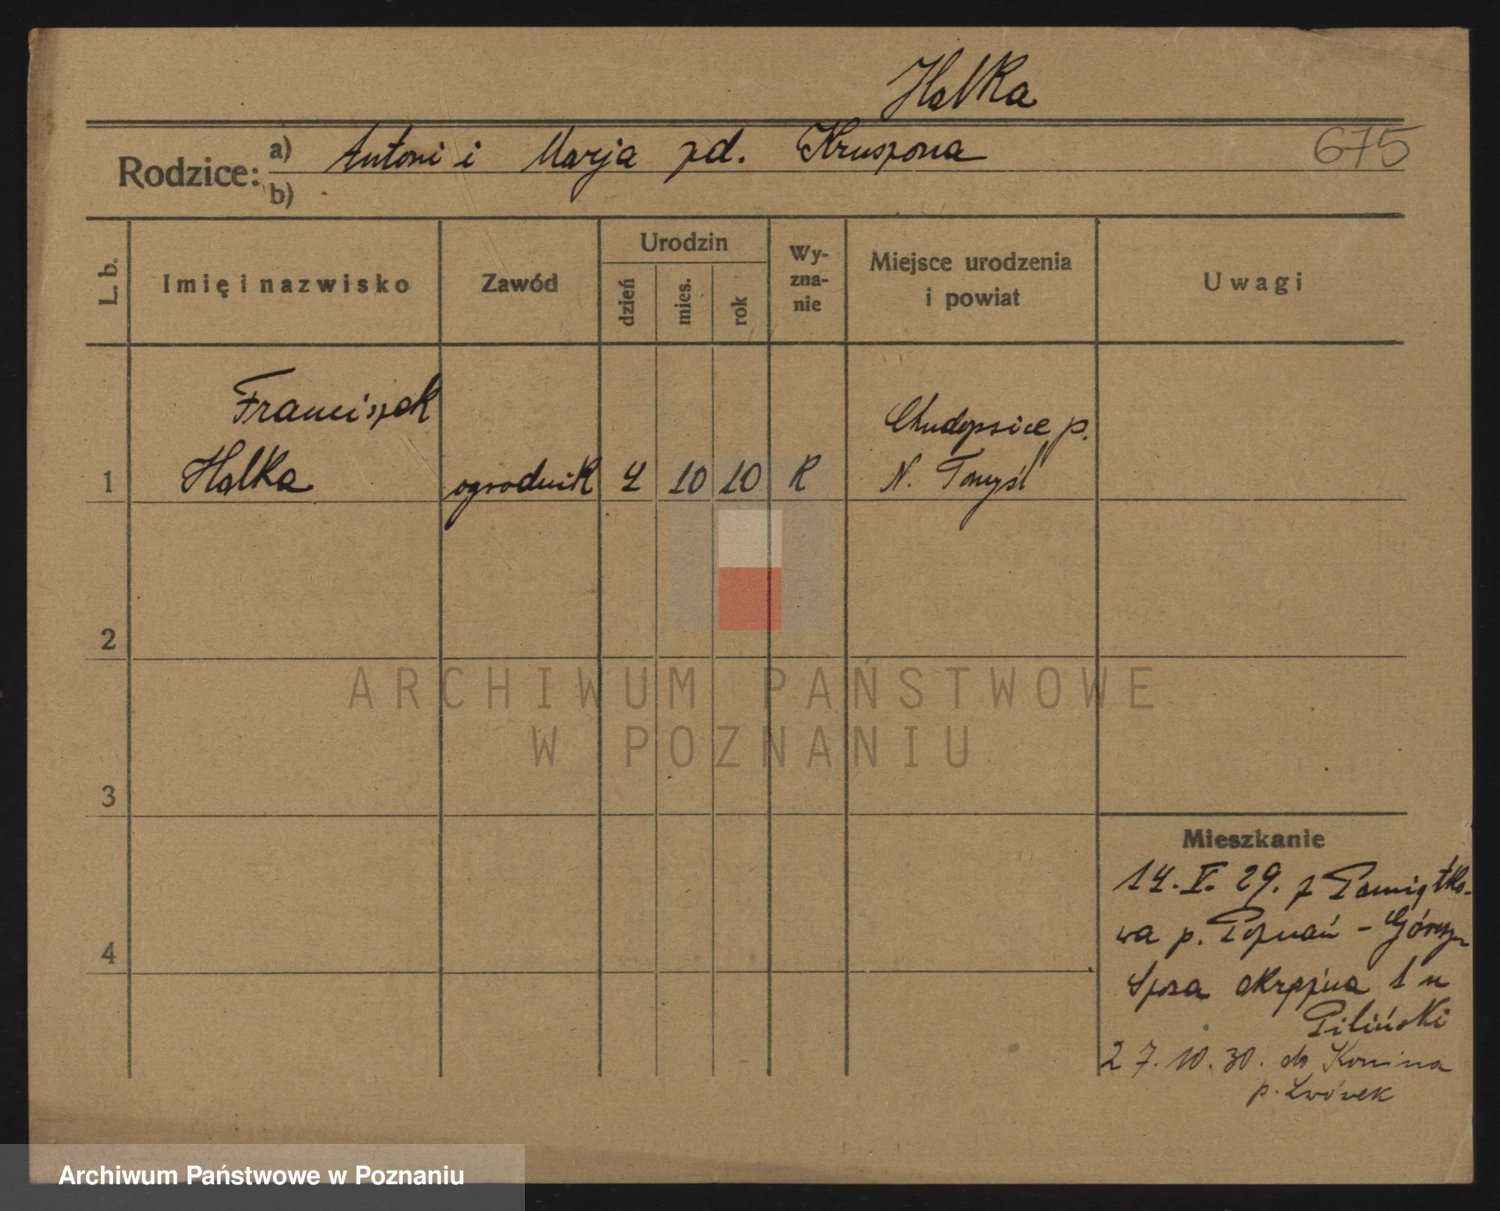 Halka
Rodzice: a) Antoni i Marja zd. Kruszona 675
b)
L. b. Imię i nazwisko Zawód Urodzin dzień mies. rok Wyznanie Miejsce urodzenia i powiat Uwagi
Franciszek
Chudopsice p.
1 Halka ogrodnik 4 10 10 R N. Tomyśl
2
3
4
Mieszkanie
14. V. 29. z Pamiątko-
wa p. Poznań - Górczyn
okrężna 1 u
Piliński
27.10.30. do Konina
p. Lwówek
ARCHIWUM PAŃSTWOWE
W POZNANIU
Archiwum Państwowe w Poznaniu